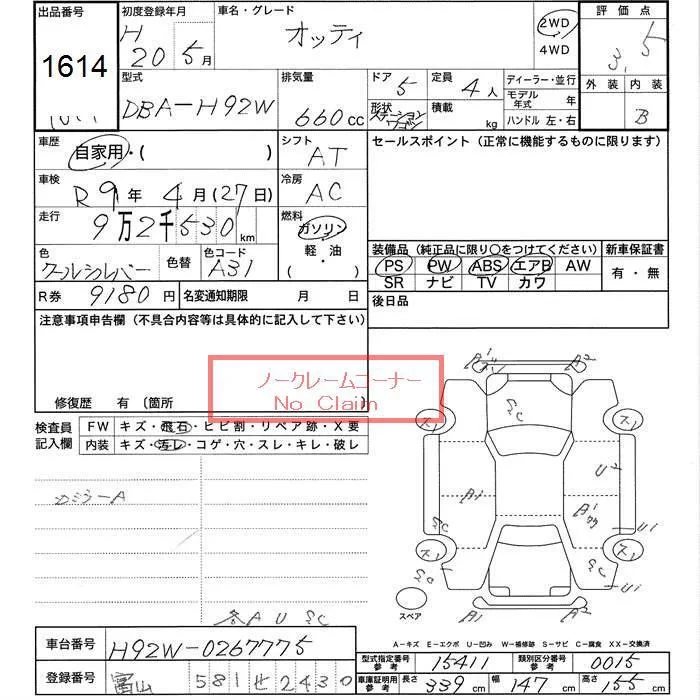 出品番号 初度登録年月 車名・グレード 評価点
1614 H 20 5月 オッティ 2WD 4WD 3.5
外装 内装
B
型式 排気量 ドア 定員 ディーラー・並行
DBA-H92W 660cc 5 4人 モデル年式 年
形状 ステーションワゴン 積載 kg ハンドル 左・右
車歴 シフト セールスポイント(正常に機能するものに限ります)
自家用・( ) AT
車検 冷房
R 9年 4月(27日) AC
走行 燃料
9万2千530km ガソリン 軽・油
・( )
色 色替 色コード
クールシルバー A31
装備品(純正品に限り○をつけてください) 新車保証書
PS PW ABS エアB AW 有・無
SR ナビ TV カワ
R券 9180円 名変通知期限 月 日 後日品
注意事項申告欄(不具合内容等は具体的に記入して下さい)
ノークレームコーナー
No Claim
修復歴 有〔箇所 〕
検査員記入欄 FW キズ・飛石・ヒビ割・リペア跡・X要
内装 キズ・汚レ・コゲ・穴・スレ・キレ・破レ
A2
スリ スリ
U2
A1 A1
U1
スリ スリ
U1
スペア
A1 A2
各A U
A-キズ E-エクボ U-凹み W-補修跡 S-サビ C-腐食 XX-交換済
車台番号 H92W-0267775
型式指定番号参考 15411 類別区分番号参考 0015
登録番号 富山 581 せ 2430
車庫証明用参考 長さ 339cm 幅 147cm 高さ 155cm